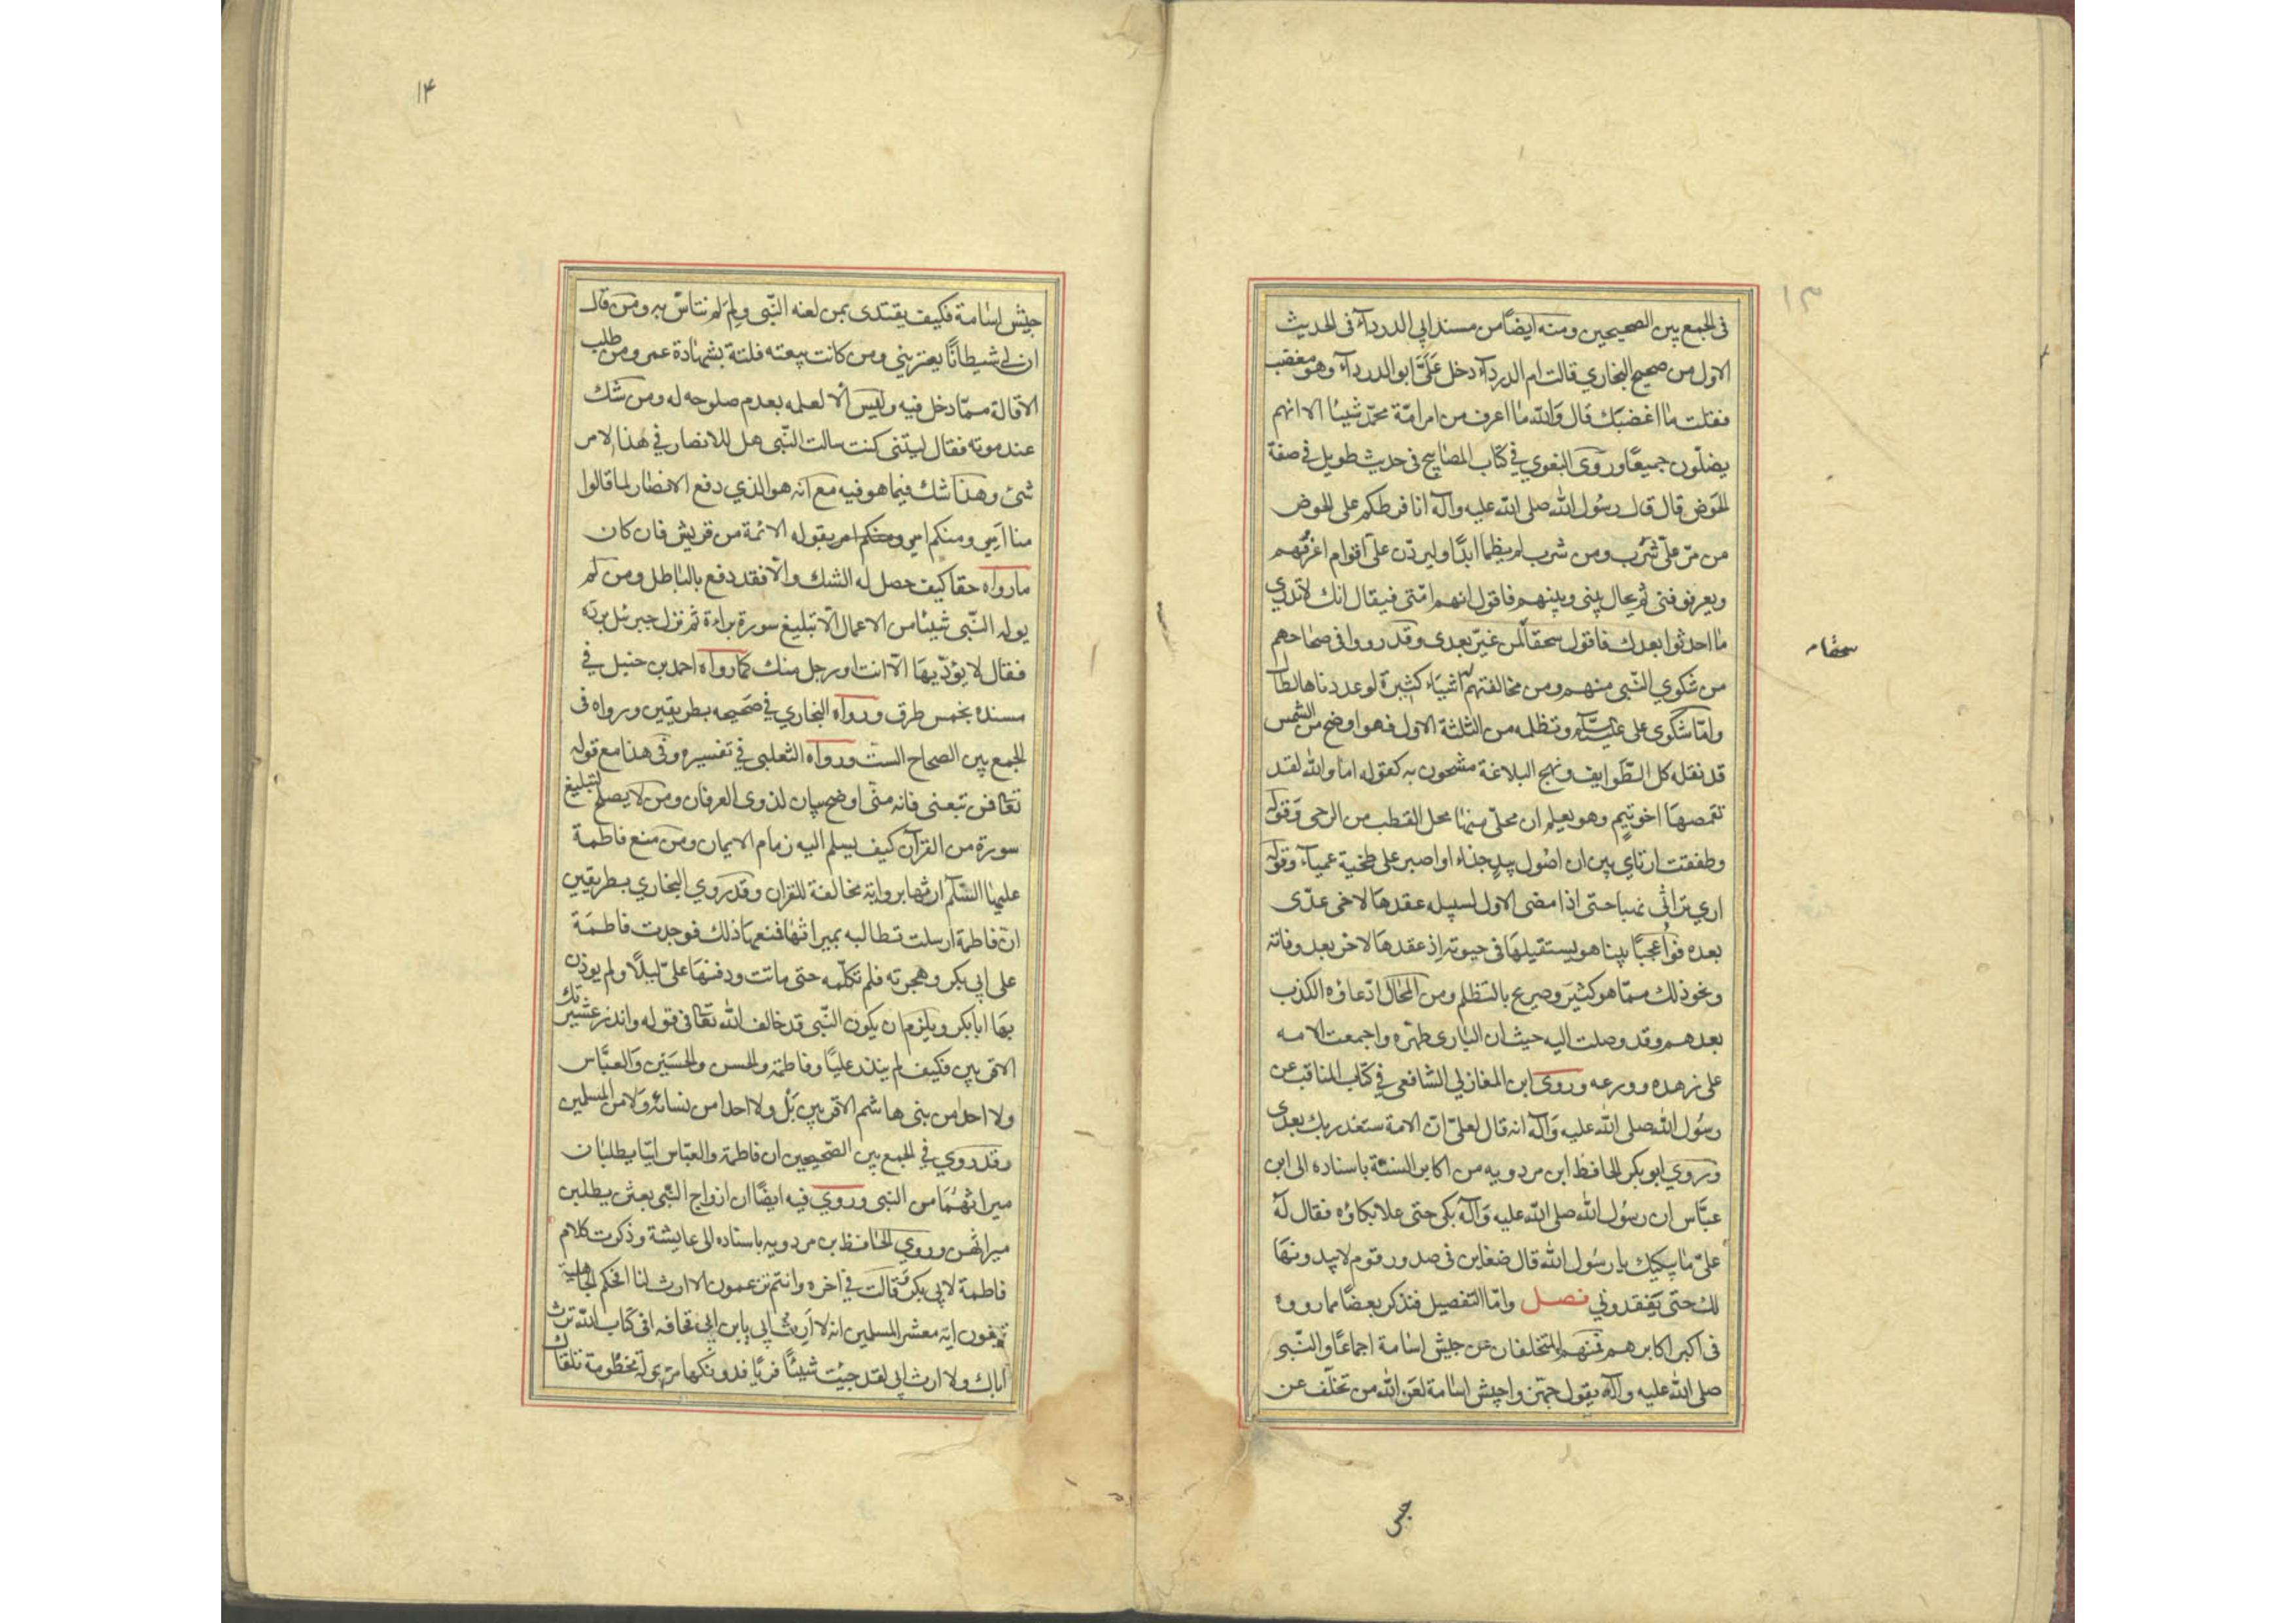 ١٣
فى الجمع بين الصحيحين ومنه ايضًا من مسند ابى الدردآء فى الحديث
الاول من صحيح البخاري قالت ام الدردآء دخل عَلَىَّ ابو الدردآء وهو مغضب
فقلت مٰا اغضبَك قال وَاللّٰه مٰا اعرف من امر امّة محمّد شيئا الا انهم
يضلّون جميعًا وروَى البغوي في كتٰاب المصٰابيح فى حديث طويل فى صفة
الحَوض قال قال رسُول اللّٰه صلى اللّٰه عليه وآله انا فرطكم على الحوض
من مرّ علىّ شرب ومن شرب لم يظمأ ابدًا وليردّن علىّ اقوام اعرفهم
ويعرفوننى ثم يحال بينى وبينهم فاقول انهم امّتى فيقال انك لا تدري
مٰا احدثوا بعدك فاقول سحقًا لمن غيّر بعدى وقد رووا فى صحاحهم
سحقا م
من شكوي النّبى منهم ومن مخالفتهم اشيَاء كثيرة لو عددناها لطال
وامّا شكوى على عليه السّلام وتظلمه من الثلثة الاول فهو اوضح من الشمس
قد نقله كل الطّوايف ونهج البلاغة مشحون به كقوله اما واللّٰه لقد
تقمصهَا اخو تيم وهو يعلم ان محلّى منهٰا محل القطب من الرحى وَقوله
وطفقت ارتاي بين ان اصُول بيد جذاء او اصبر على طخية عميآء وقوله
اري تراثى نهبا حتى اذا مضى الاول لسبيله عقدهَا لاخى عدّى
بعده فوٰا عجبًا بينا هو يستقيلهَا فى حيوته اذ عقدهَا لاخر بعد وفاته
ونحو ذلك ممّا هو كثيَر وصريح بالتظلم ومن المحَال ادّعاؤه الكذب
بعدهم وقد وصلت اليه حيث ان البٰارى طهّره واجمعت الامه
على زهده وورعه وروى ابن المغازلي الشافعى في كتٰاب المناقب عن
رسُول اللّٰه صلى اللّٰه عليه وَآله انه قال لعلىّ انّ الامة ستغدر بك بعدى
وروي ابو بكر الحافظ ابن مردويه من اكابر السنة باسناده الى ابن
عبّاس ان رسُول اللّٰه صلى اللّٰه عليه وَآله بكى حتى علا بكاؤه فقال له
علىّ مٰا يبكيك يا رسُول اللّٰه قال ضغاين فى صدور قوم لا يبدونهَا
لك حتى يَفقدوني فصل وامّا التفصيل فنذكر بعضًا مما رووه
فى اكبر اكابرهم فمنهم المتخلفان عن جيش اسٰامة اجماعًا والنّبى
صلى اللّٰه عليه وآله يقول جهّزوا جيش اسٰامة لعن اللّٰه من تخلّف عن
جيش
١۴
جيش اسٰامة فكيف يقتدى بمن لعنه النّبى ولِمَ لم نتاسّ به ومن قال
ان لى شيطانًا يعترينى ومن كانت بيعته فلتة بشهٰادة عمر ومن طلب
الاقالة ممّا دخل فيه وليس الّا لعلمه بعدم صلوحه له ومن شك
عند موته فقال ليتنى كنت سالت النّبى هل للانصار في هذا الامر
شئ وهذا شك فيما هو فيه مع انه هو الذي دفع الانصٰار لما قالوا
منا امير ومنكم امير ومنكم امير بقوله الائمة من قريش فان كان
ما رواه حقا كيف حصل له الشك والّا فقد دفع بالبٰاطل ومن لم
يوله النّبى شيئا من الاعمال الّا تبليغ سورة براءة ثم نزل جبرئل برده
فقال لا يؤدّيهَا الّا انت او رجل منك كما رواه احمد بن حنبل في
مسنده بخمس طرق ورواه البخاري في صَحيحه بطريقين ورواه فى
الجمع بين الصحاح الستّ ورواه الثعلبى في تفسيره وفى هذا مع قوله
تعٰا فمن تبعنى فانه منّى اوضح بيان لذوى العرفان ومن لا يصلح لتبليغ
سورة من القرآن كيف يسلم اليه زمام الايمان ومن منع فاطمة
عليهٰا السّلم ارثهٰا برواية مخالفة للقران وقد روي البخاري بطريقين
انّ فاطمة ارسلت تطالبه بميراثهٰا فمنعهَا ذلك فوجدت فاطمَة
على ابى بكر وهجرته فلم تكلّمه حتى ماتت ودفنهَا علىّ ليلًا ولم يوذن
بهَا ابا بكر ويلزم ان يكون النّبى قد خالف اللّٰه تعٰا فى قوله وانذر عشيرتك
الاقربين فكيف لم ينذر عليًّا وفاطمة والحسن والحسَين وَالعبَّاس
ولا احدا من بنى هاشم الاقربين بَلْ ولا احدا من نسائه وَلا من المسلمين
وقد روي فى الجمع بين الصّحيحين ان فاطمة والعبّاس اتيَا يطلبٰان
ميراثهُمَا من النبى وروي فيه ايضًا ان ازواج النّبى بعثن يطلبن
ميراثهن وروي الحٰافظ بن مردويه باسناده الى عايشة وذكرت كلام
فاطمة لابي بكر وَقالت في اخره وانتم تزعمون الا ارث لنا افحكم الجاهلية
تبغون ايه معشر المسلمين انه لا ارث ابى يا بن ابى قحافه افى كتاب اللّٰه ترث
اباك ولا ارث ابى لقد جئت شيئًا فريًا فدونكها مرحولة مخطومة تلقاك